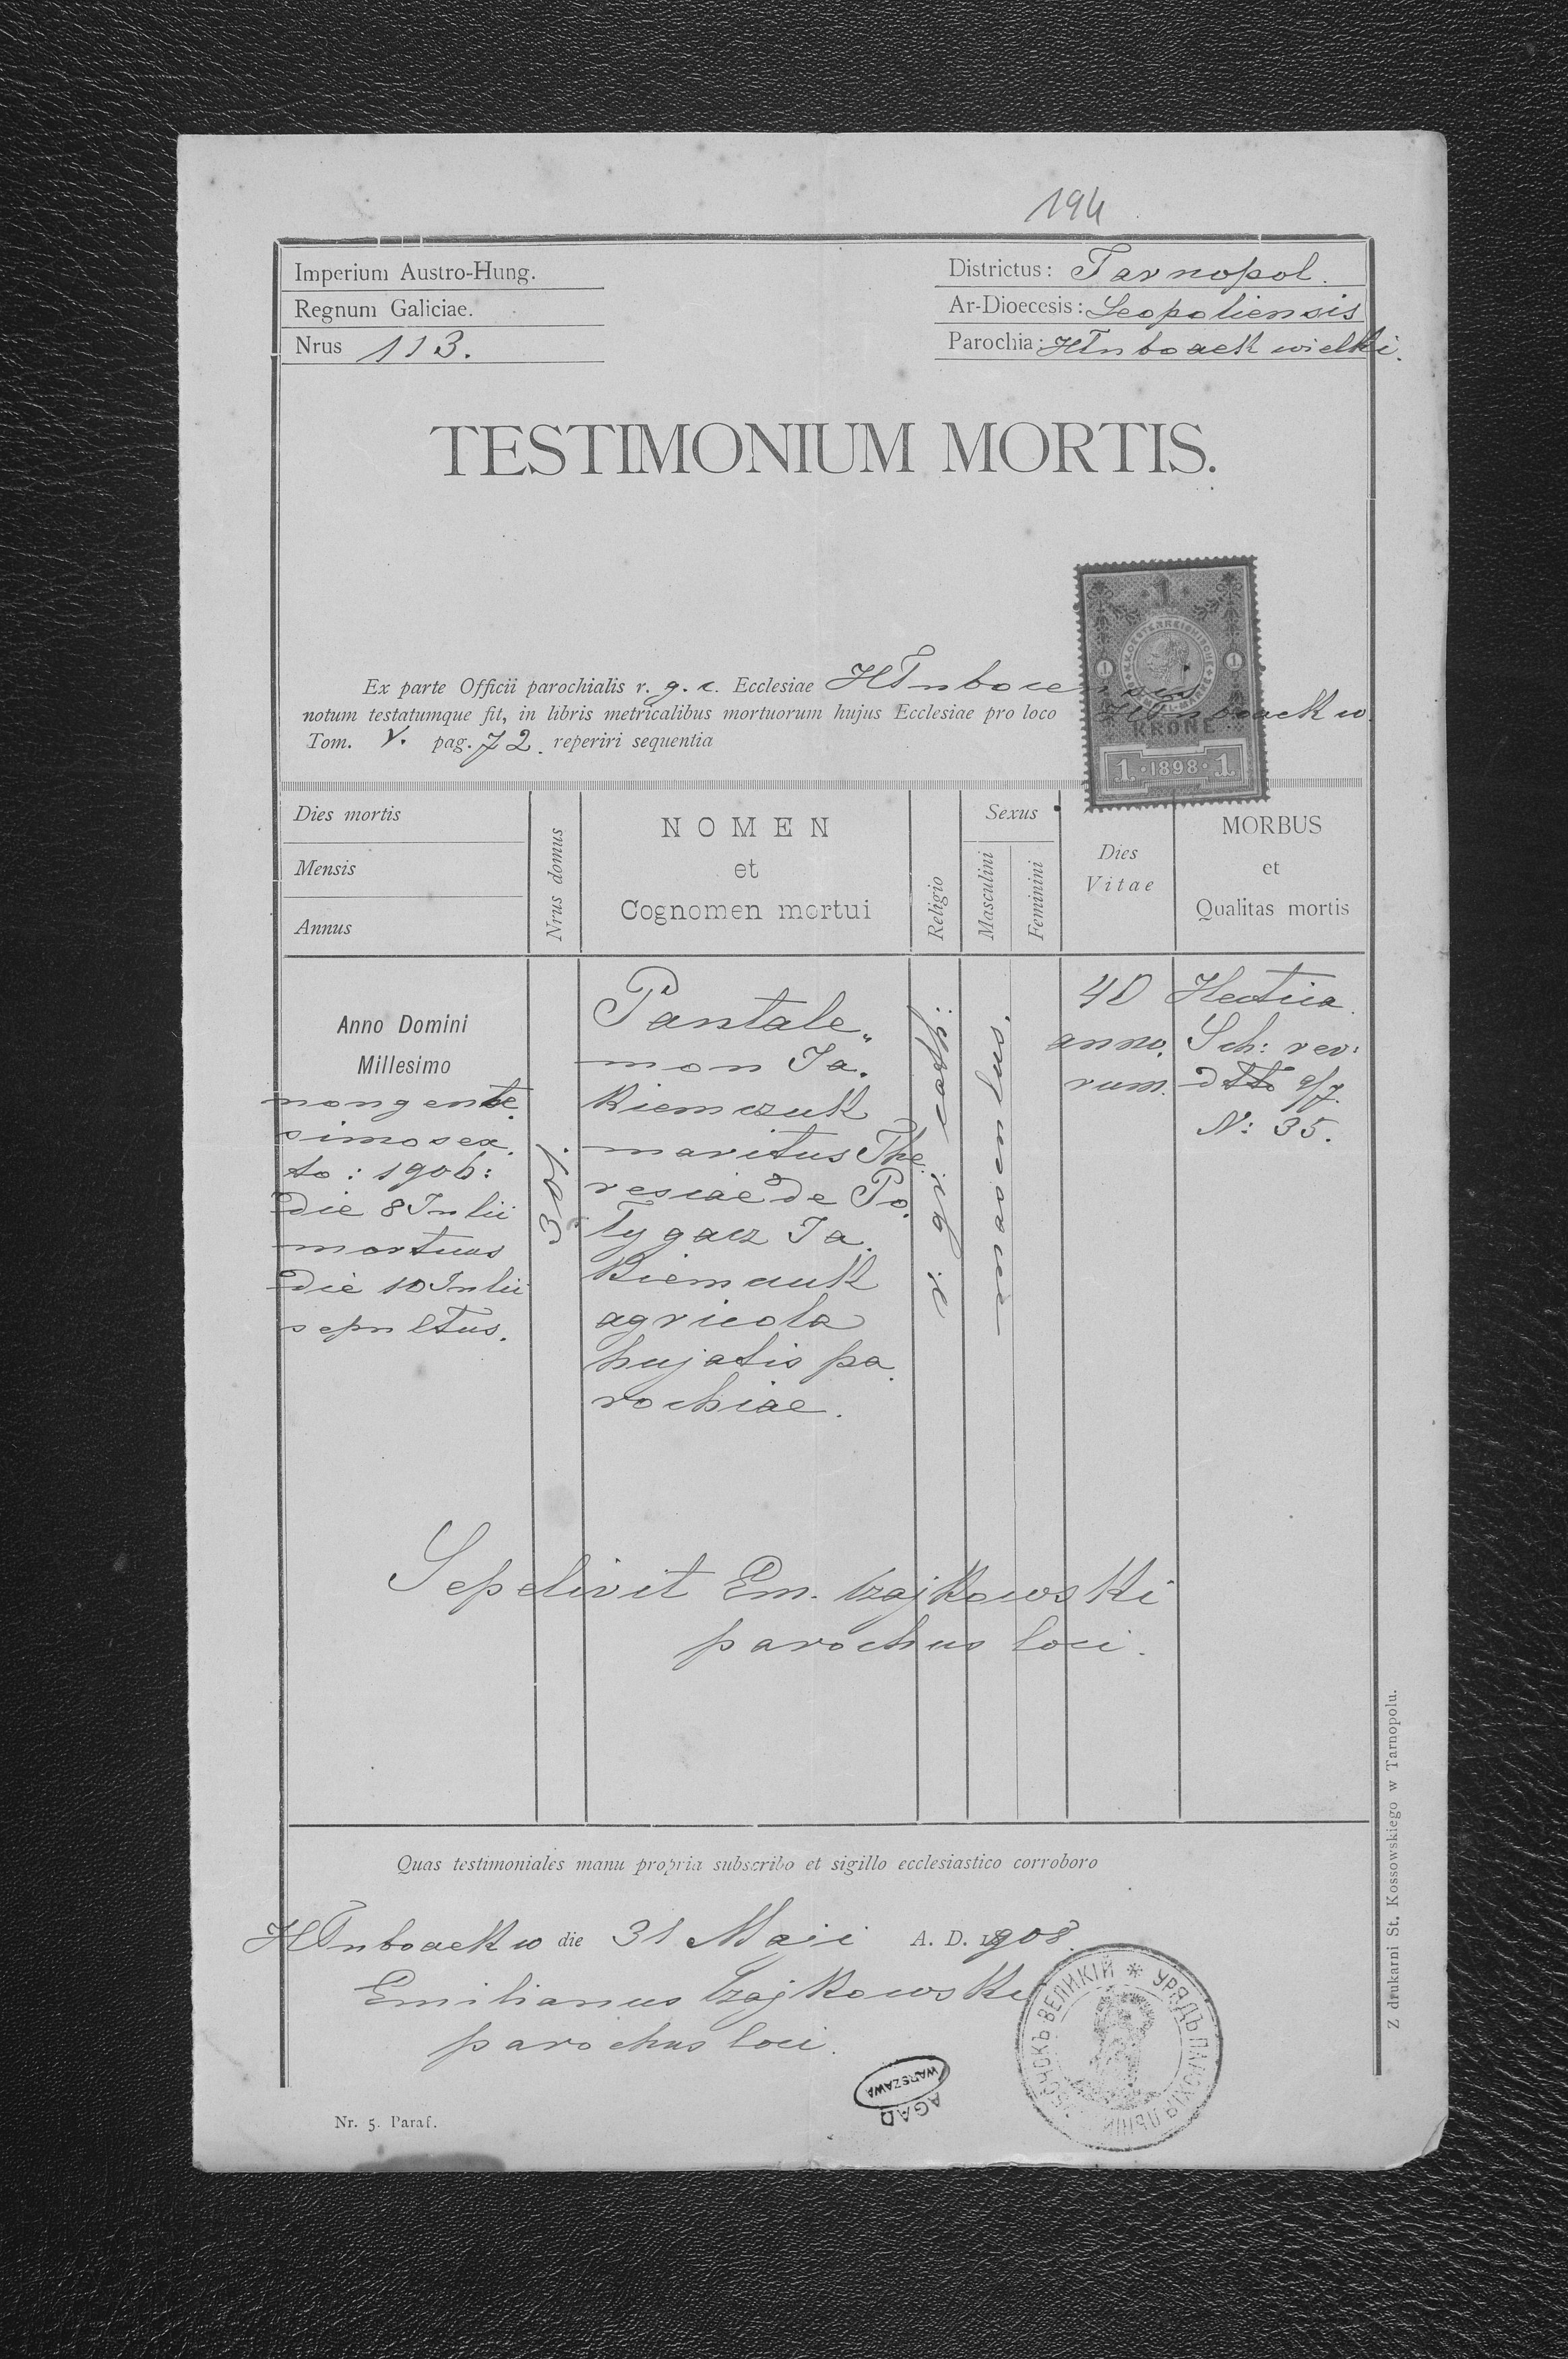 194
Imperium Austro-Hung.
Regnum Galiciae.
Nrus 113.
Districtus: Tarnopol.
Ar-Dioecesis: Leopoliensis
Parochia: Hłuboczek wielki.
TESTIMONIUM MORTIS.
Ex parte Officii parochialis r. g. c. Ecclesiae Hłuboce
notum testatumque fit, in libris metricalibus mortuorum hujus Ecclesiae pro loco Hłuboczek w.
Tom. V. pag. 72. reperiri sequentia
KRONE
1 · 1898 · 1
Dies mortis
Mensis
Annus
Nrus domus
NOMEN
et
Cognomen mortui
Religio
Sexus
Masculini
Feminini
Dies
Vitae
MORBUS
et
Qualitas mortis
Anno Domini
Millesimo
nongente
simo sex
to: 1906:
die 8 Julii
mortuus
die 10 Julii
sepultus.
301.
Pantale„
mon Ja.
kiemczuk
maritus The
resiae de Po.
łygacz Ja.
kiemczuk
agricola
hujatis pa.
rochiae.
r. gr. cath:
masculus.
40
anno.
rum.
Hectica
Sch: rev:
dtto 9/7.
N: 35.
Sepelivit Em. Czajkowski
parochus loci.
Quas testimoniales manu propria subscribo et sigillo ecclesiastico corroboro
Hłuboczek w die 31 Maji A. D. 1908.
Emilianus Czajkowski
parochus loci.
ВЕЛИКІЙ * УРЯДЪ ПАРОХІЯЛЬНЫЙ
AGAD
WARSZAWA
Nr. 5. Paraf.
Z drukarni St. Kossowskiego w Tarnopolu.